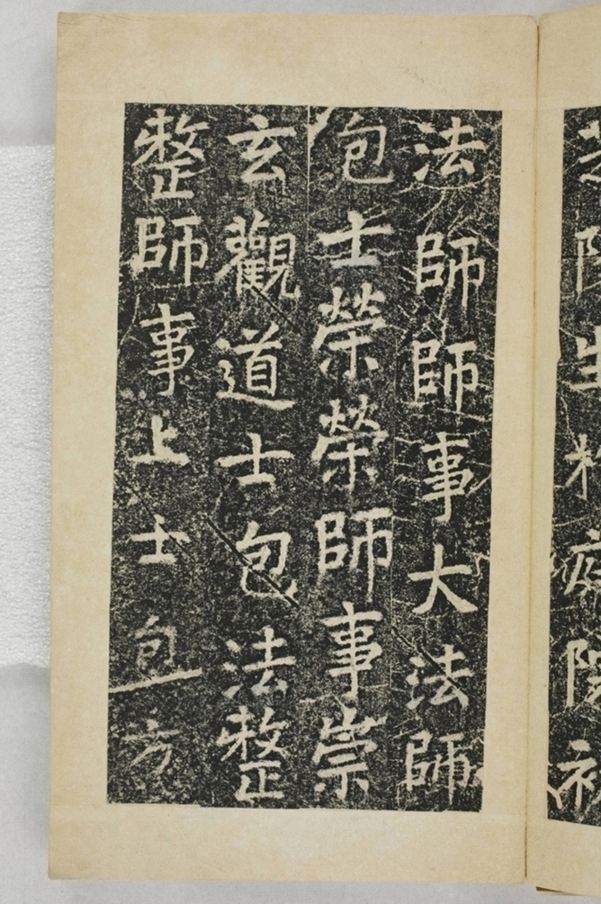 法師師事大法師
包士榮榮師事崇
玄觀道士包法整
整師事上士包方